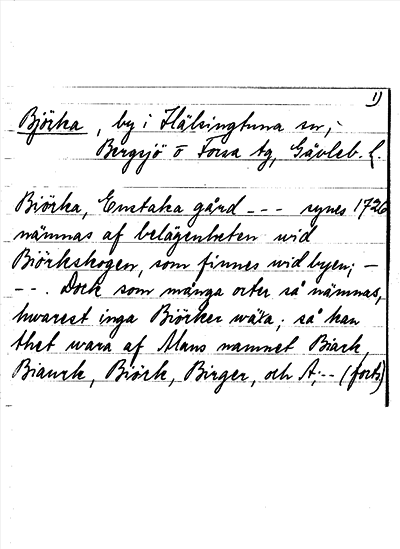 1)
Björka, by i Hälsingtuna sn,
Bergsjö o Forsa tg, Gävleb. l.
Biörka, Enstaka gård --- synes 1726
nämnas af belägenheten wid
Biörkskogen, som finnes wid byen; -
--. Dock som många orter så nämnas,
hwarest inga Biörker wäxa; så kan
thet wara af Mans namnet Biark,
Biaurk, Biörk, Birger, och A;-- (forts)